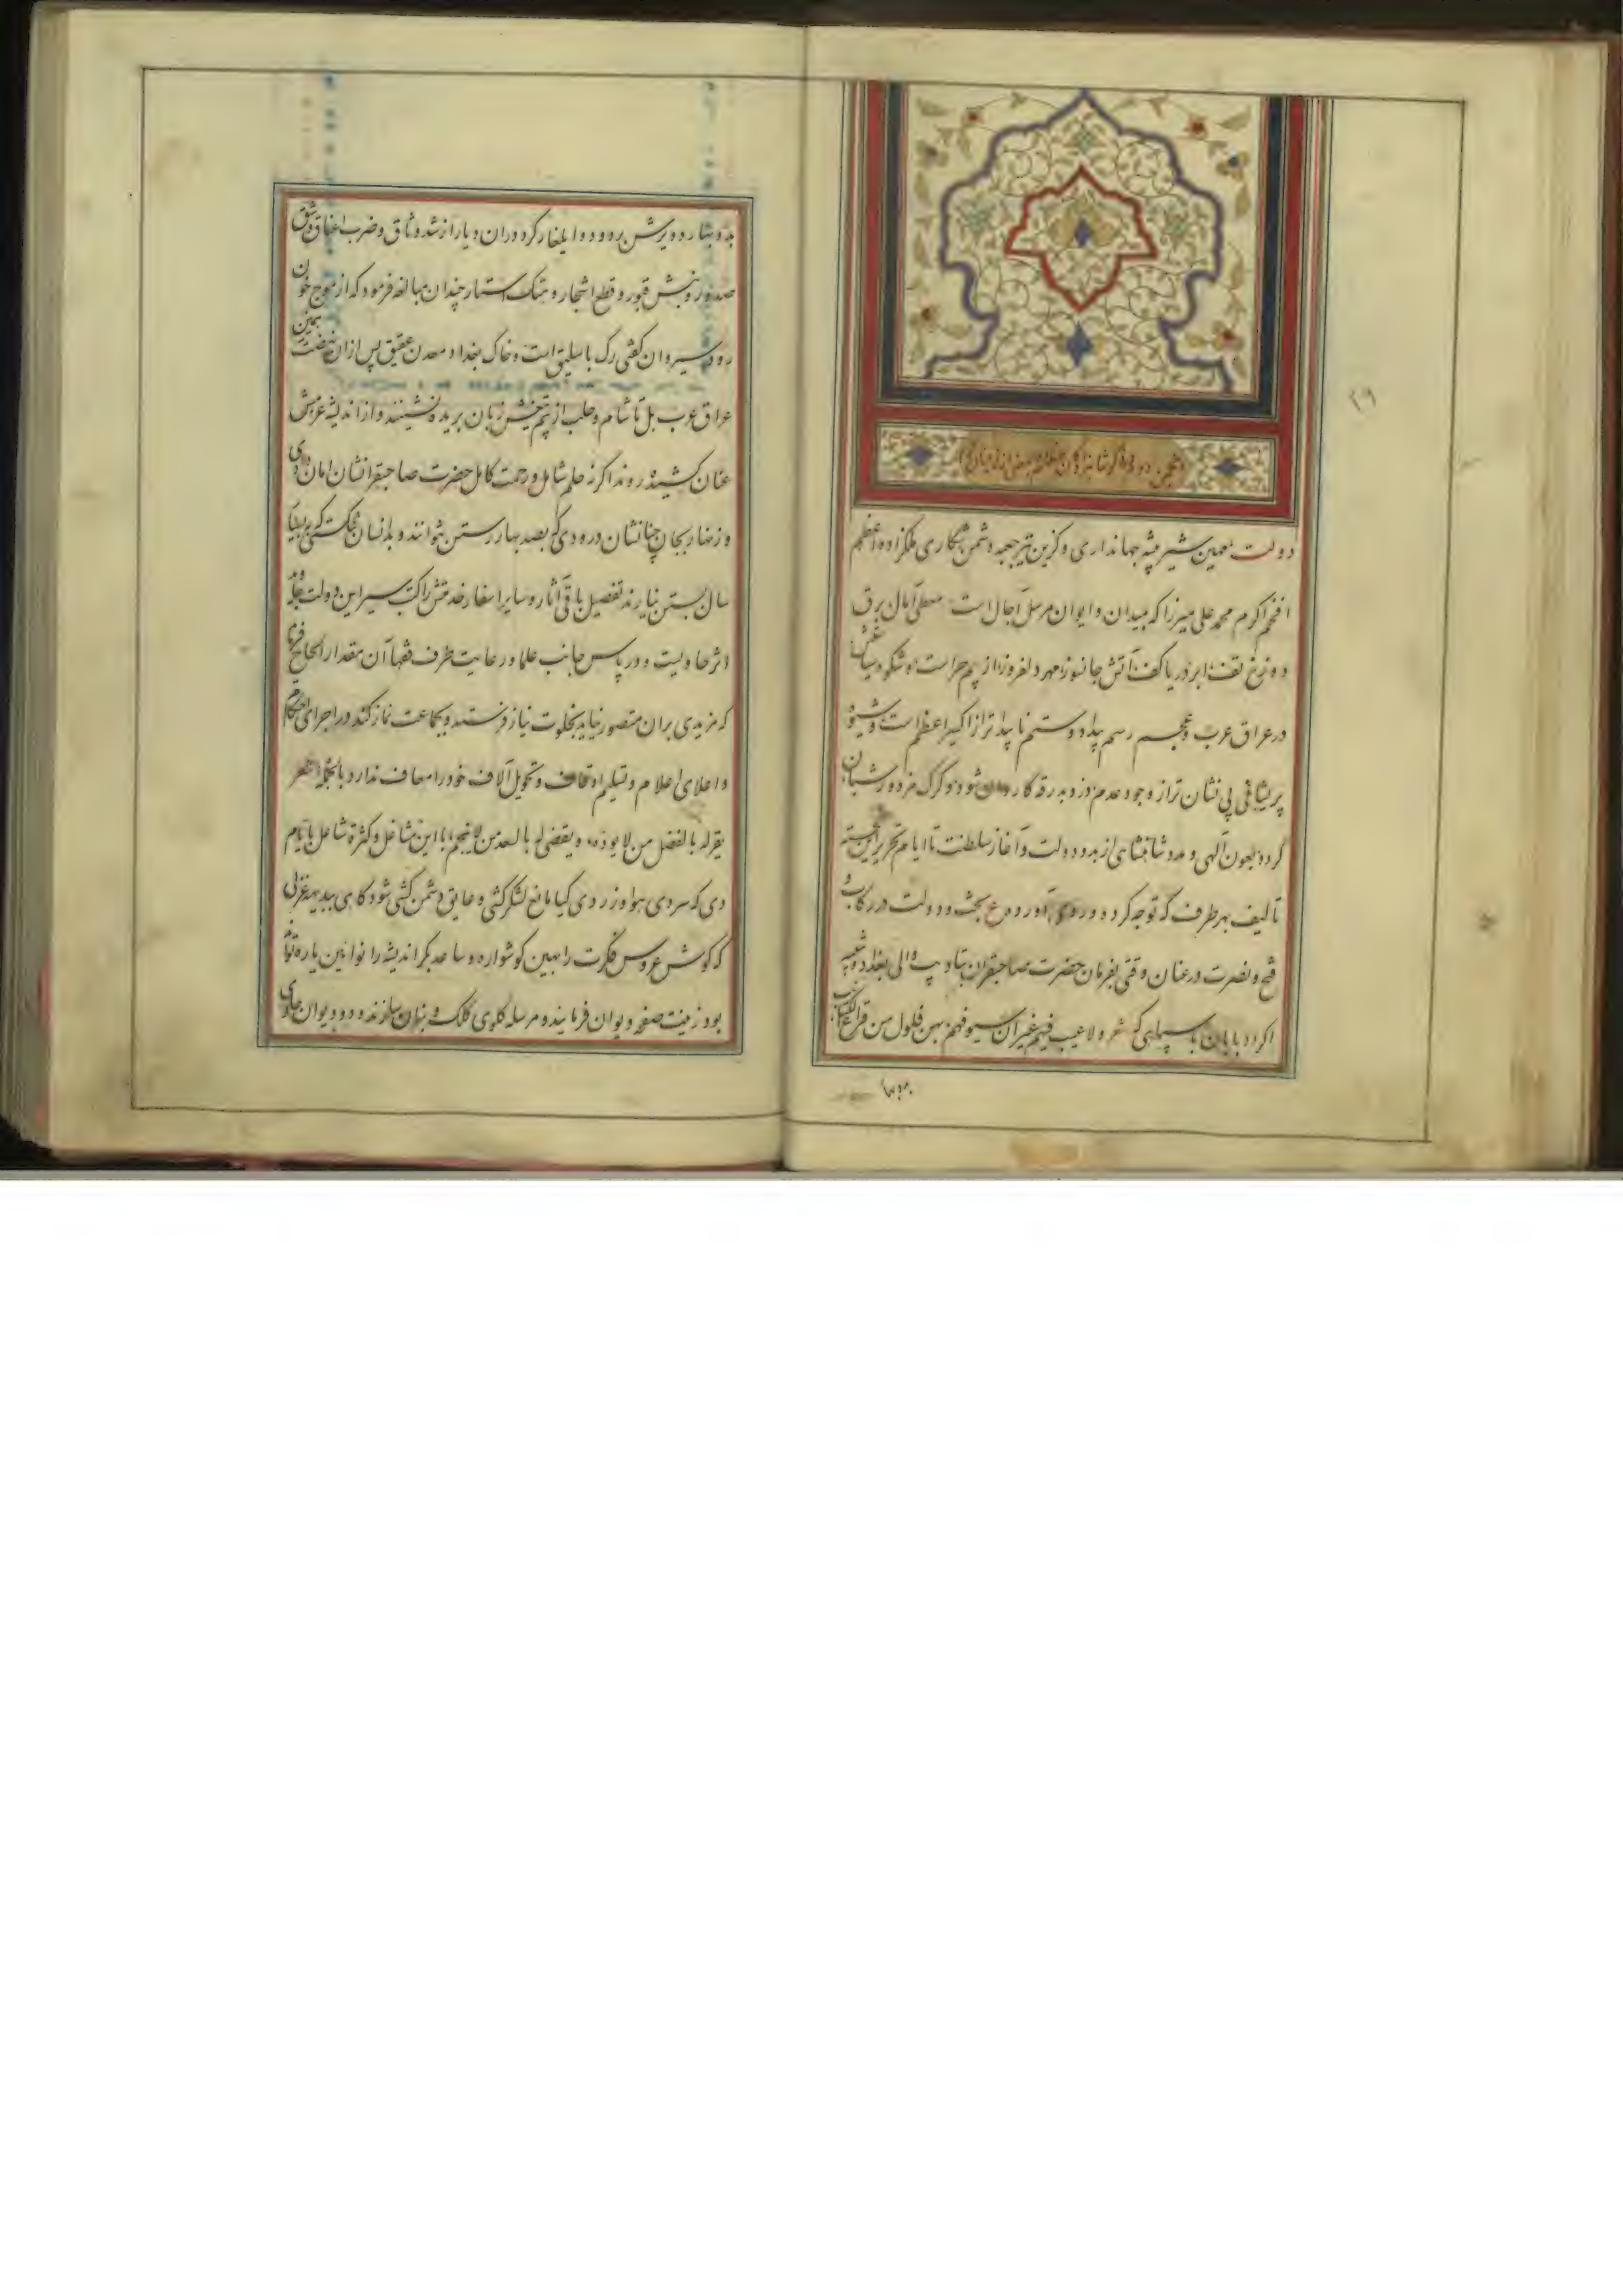 ۲۹
دولت مهین شیر بیشه جهانداری و گزین تیر جعبه دشمن شکاری ملکزاده اعظم
افخم اکرم محمد علی میرزا که بمیدان و ایوان مرسل آجال است معطی آمال برق
دوزخ تف ابر دریا کف آتش جانسوز مهر دلفروز از بیم حراست و شکوه سیاستش
در عراق عرب و عجم رسم بیداد و ستم ناپیداتر از اکسیر اعظم است و شیوه
پریشانی بی نشان تر از وجود عدم دزد بدرقه کاروان شود و گرگ مزدور شبان
کرده بعون آلهی و مدد شاهنشاهی از بدو دولت و آغاز سلطنت تا ایام تحریر این خجسته
تألیف بهر طرف که توجه کرده و روی آورده بخت و دولت در رکاب و
فتح و نصرت در عنان وقتی بفرمان حضرت صاحبقران بتادیب والی بغداد و تنبیه
اکراد بابان با سپاهی که شعر ولا عیب فیهم غیر ان سیوفهم بهن فلول من قراع الکتائب
بدو
بدو یرش برده و ایلغار کرد در آن دیار از شد وثاق و ضرب اعناق و شق
صدور و نبش قبور و قطع اشجار و هتک استار چندان مبالغه فرمود که از موج خون
رود سیروان گفتی رگ باسلیق است و خاک بغداد معدن عقیق پس از آن نهضت
عراق عرب بل تا شام و حلب از بیم تیغش زبان بریده نشینند و از اندیشه عزمش
عنان کشیده روند اگر نه حلم شامل و رحمت کامل حضرت صاحبقرانشان امان دادی
و زنهار بجان چنانشان درودی که بصد بهار رستن نتوانند و بدانسان شکستی که
سال بستن نیارند تفصیل باقی آثار و سایر اسفار خدمتش را کتب سیر این دولت
اثر حاویست و در پاس جانب علما و رعایت طرف فقها آن مقدار الحاح فرماید
که مزیدی بر آن متصور نیاید بخلوت نیاز فرستد و بجماعت نماز کند در اجرای احکام
و اعلای اعلام و تسلیم اوقاف و تحویل آلاف خود را معاف ندارد بالجمله
یقر له بالفضل من لا یوده و یقضی له بالسعد من لا ینجم با این مشاغل و کثرة شاغل بایام
دی که سردی هوا و زردی گیا مانع لشکرکشی و عایق دشمن کشی شود گاهی ببدیهه غزلی
که گوش عروس فکرت را بهین گوشواره و ساعد بکر اندیشه را نوآئین یاره تواند
بود زینت صفحه دیوان فرمایند و مرسله گلوی کلک و بنان سازند و دو دیوان حاوی